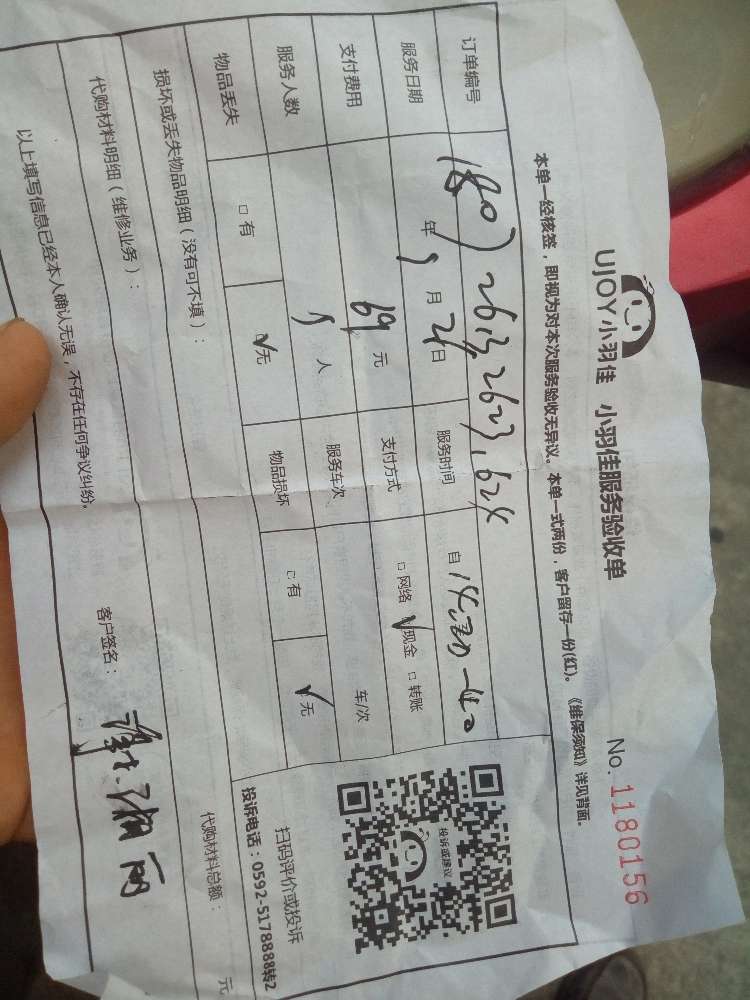 UJOY小羽佳 小羽佳服务验收单 No.1180156
本单一经核签，即视为对本次服务验收无异议。本单一式两份，客户留存一份(红)。《维保须知》详见背面。
订单编号
服务日期 年 月 日 服务时间 自
支付费用 69 元 支付方式 □网络 √现金 □转账
服务人数 人 服务车次 车/次
物品丢失 □有 √无 物品损坏 □有 √无
损坏或丢失物品明细（没有可不填）：
代购材料明细（维修业务）： 代购材料总额： 元
以上填写信息已经本人确认无误，不存在任何争议纠纷。 客户签名：
投诉或建议
扫码评价或投诉
投诉电话：0592-5178888转2